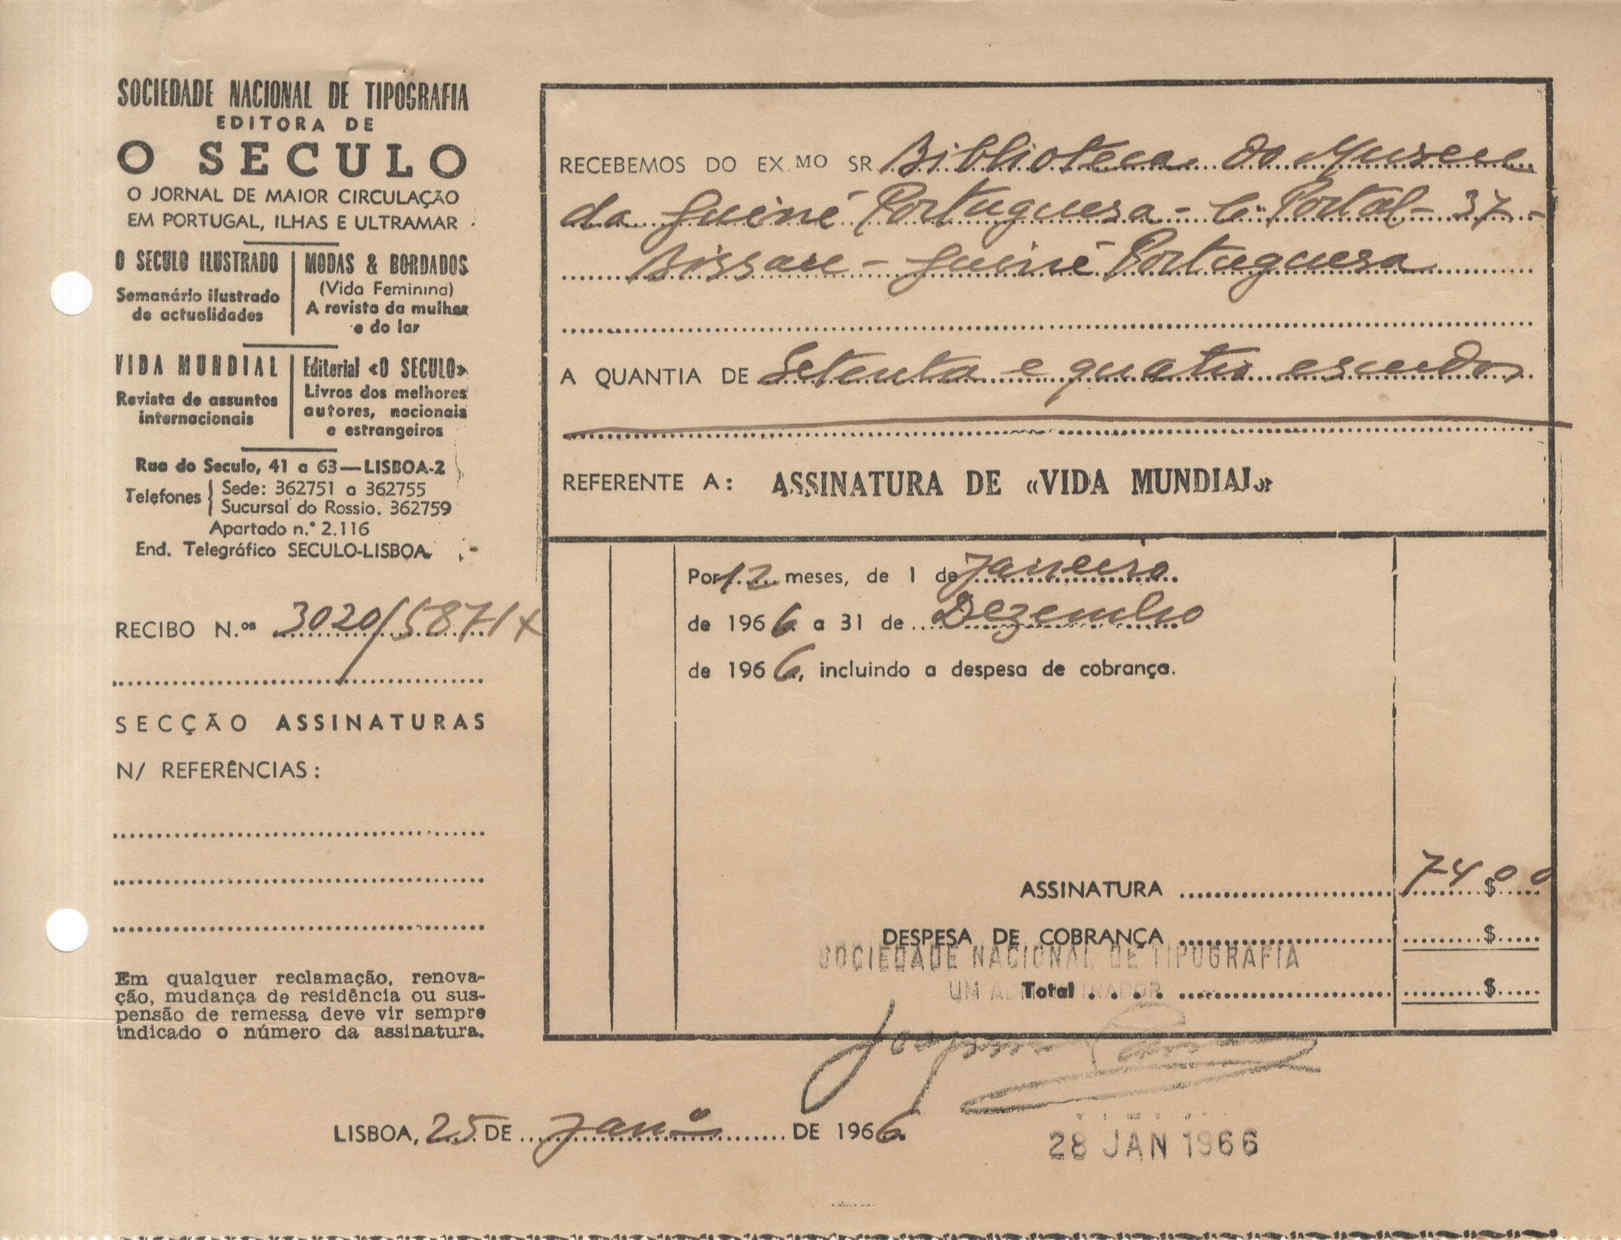 SOCIEDADE NACIONAL DE TIPOGRAFIA
EDITORA DE
O SECULO
O JORNAL DE MAIOR CIRCULAÇÃO
EM PORTUGAL, ILHAS E ULTRAMAR
O SECULO ILUSTRADO
Semanário ilustrado
de actualidades
MODAS & BORDADOS
(Vida Feminina)
A revista da mulher
e do lar
VIDA MUNDIAL
Revista de assuntos
internacionais
Editorial «O SECULO»
Livros dos melhores
autores, nacionais
e estrangeiros
Rua do Seculo, 41 a 63—LISBOA-2
Telefones
Sede: 362751 a 362755
Sucursal do Rossio. 362759
Apartado n.º 2.116
End. Telegráfico SECULO-LISBOA
RECIBO N.os 3020/5871 X
SECÇÃO ASSINATURAS
N/ REFERÊNCIAS:
Em qualquer reclamação, renova-
ção, mudança de residência ou sus-
pensão de remessa deve vir sempre
indicado o número da assinatura.
RECEBEMOS DO EX.MO SR Biblioteca do Museu
da Guiné Portuguesa - C. Postal - 37 -
Bissau - Guiné Portuguesa
A QUANTIA DE Setenta e quatro escudos
REFERENTE A: ASSINATURA DE «VIDA MUNDIAL»
Por 12 meses, de 1 de Janeiro
de 1966 a 31 de Dezembro
de 1966, incluindo a despesa de cobrança.
ASSINATURA 74$00
DESPESA DE COBRANÇA $
SOCIEDADE NACIONAL DE TIPOGRAFIA
Total $
LISBOA, 25 DE Janº DE 1966
28 JAN 1966